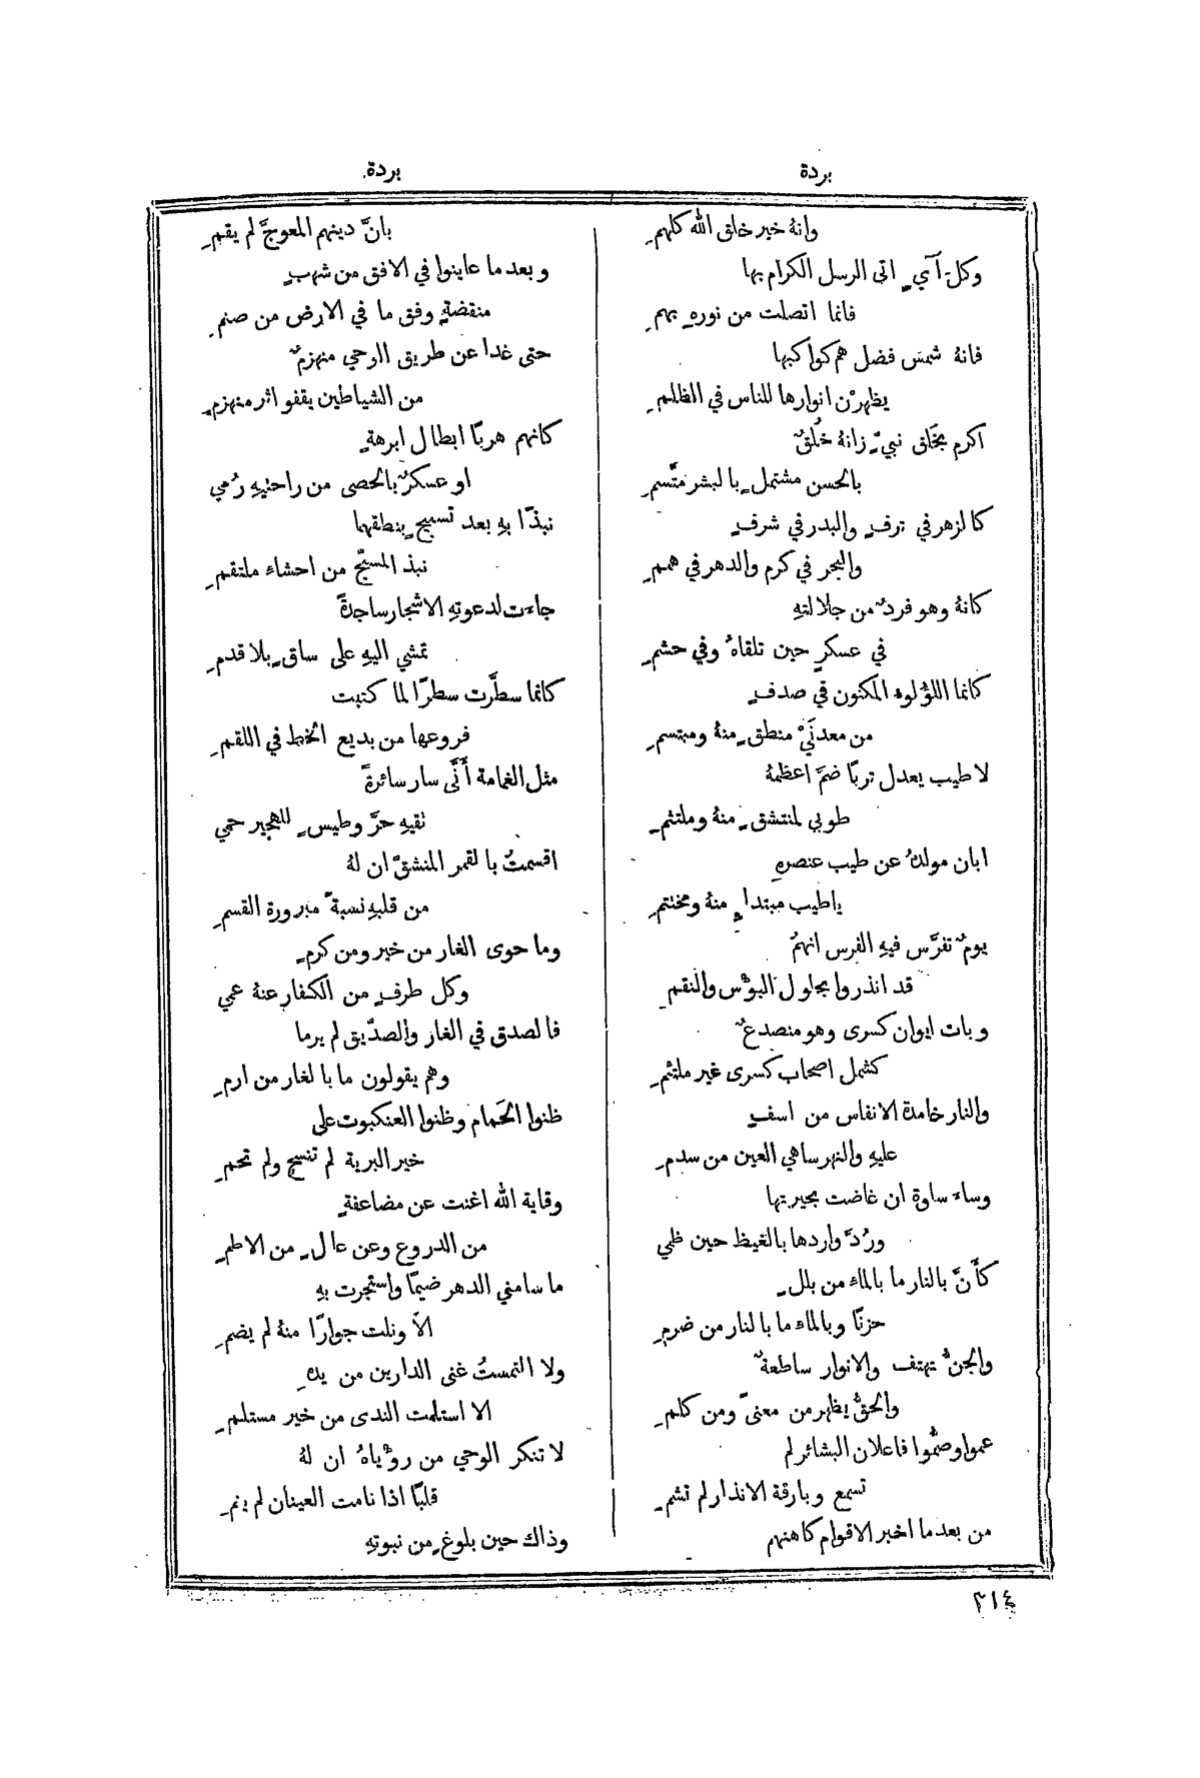 بردة
بردة
وانهُ خير خلق الله كلهمِ
وكل آيٍ اتى الرسل الكرام بها
فانما اتصلت من نورهِ بهمِ
فانهُ شمس فضل هم كواكبها
يظهرْن انوارها للناس في الظلمِ
اكرم بخَلق نبيٍّ زانهُ خُلقٌ
بالحسن مشتملٍ بالبشر متَّسمِ
كالزهر في ترفٍ والبدر في شرفٍ
والبحر في كرم والدهر في هممِ
كانهُ وهو فردٌ من جلالتهِ
في عسكرٍ حين تلقاهُ وفي حشمِ
كانما اللؤلوء المكنون في صدفٍ
من معدنَيْ منطقٍ منهُ ومبتسمِ
لا طيب يعدل تربًا ضمَّ اعظمهُ
طوبي لمنتشقٍ منهُ وملتثمِ
ابان مولدُ عن طيب عنصرهِ
ياطيب مبتداءٍ منهُ ومختتمِ
يومٌ تفرَّس فيهِ الفرس انهمُ
قد انذروا بحلول البؤس والنقمِ
وبات ايوان كسرى وهو منصدعٌ
كشمل اصحاب كسرى غير ملتئمِ
والنار خامدة الانفاس من اسفٍ
عليهِ والنهر ساهي العين من سدمِ
وساء ساوة ان غاضت بحيرتها
ورُدَّ واردها بالغيظ حين ظمي
كأَنَّ بالنار ما بالماء من بللٍ
حزنًا وبالماء ما بالنار من ضرمِ
والجنُّ تهتف والانوار ساطعةٌ
والحقُّ يظهر من معنىً ومن كلمِ
عموا وصمُّوا فاعلان البشائر لم
تسمع وبارقة الانذار لم تشمِ
من بعد ما اخبر الاقوام كاهنهم
بانَّ دينهم المعوجَّ لم يقمِ
وبعد ما عاينوا في الافق من شهبٍ
منقضةٍ وفق ما في الارض من صنمِ
حتى غدا عن طريق الوحي منهزمٌ
من الشياطين يقفو اثر منهزمِ
كانهم هربًا ابطال ابرهةٍ
او عسكرٌ بالحصى من راحتيهِ رُمي
نبذًا بهِ بعد تسبيحٍ ببطنهما
نبذ المسبّح من احشاء ملتقمِ
جاءت لدعوتهِ الاشجار ساجدةً
تمشي اليهِ على ساقٍ بلا قدمِ
كانما سطَّرت سطرًا لما كتبت
فروعها من بديع الخط في اللقمِ
مثل الغمامة أَنَّى سار سائرةً
تقيهِ حرَّ وطيسٍ للهجير حمي
اقسمتُ بالقمر المنشقّ ان لهُ
من قلبهِ نسبةً مبرورة القسمِ
وما حوى الغار من خير ومن كرمٍ
وكل طرفٍ من الكفار عنهُ عمي
فالصدق في الغار والصدّيق لم يرما
وهم يقولون ما بالغار من ارمِ
ظنوا الحَمام وظنوا العنكبوت على
خير البرية لم تنسج ولم تحمِ
وقاية الله اغنت عن مضاعفةٍ
من الدروع وعن عالٍ من الاطمِ
ما سامني الدهر ضيمًا واستجرت بهِ
الاّ ونلت جوارًا منهُ لم يضمِ
ولا التمستُ غنى الدارين من يدهِ
الا استلمت الندى من خير مستلمِ
لا تنكر الوحي من رؤْياهُ ان لهُ
قلبًا اذا نامت العينان لم ينمِ
وذاك حين بلوغٍ من نبوتهِ
٣١٤